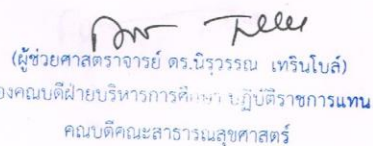 (ผู้ช่วยศาสตราจารย์ ดร.นิรุวรรณ เทรินโบล์)
องคณบดีฝ่ายบริหารการศึกษา ปฏิบัติราชการแทน
คณบดีคณะสาธารณสุขศาสตร์